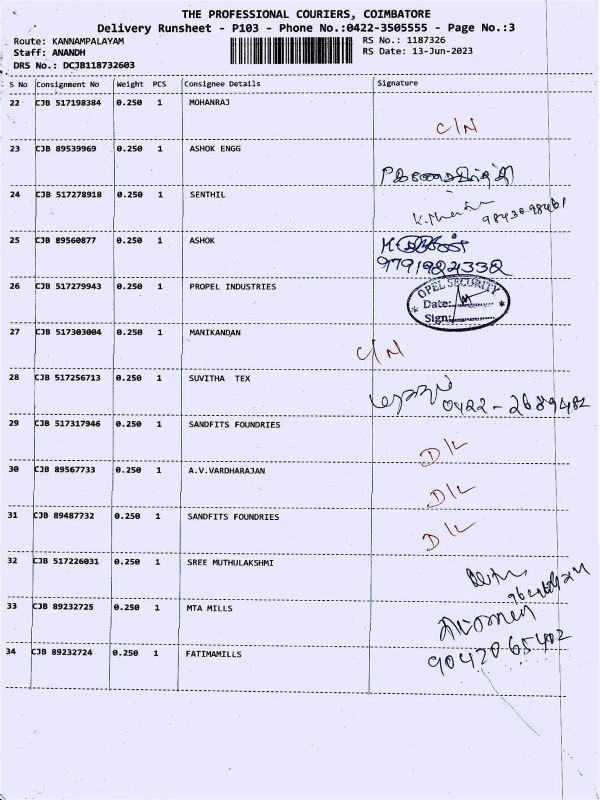 THE PROFESSIONAL COURIERS, COIMBATORE
Delivery Runsheet - P103 - Phone No.:0422-3505555 - Page No.:3
Route: KANNAMPALAYAM RS No.: 1187326
Staff: ANANDH RS Date: 13-Jun-2023
DRS No.: DCJB118732603
S No Consignment No Weight PCS Consignee Details Signature
22 CJB 517198384 0.250 1 MOHANRAJ
C/N
23 CJB 89539969 0.250 1 ASHOK ENGG
24 CJB 517278918 0.250 1 SENTHIL
9843098461
25 CJB 89560877 0.250 1 ASHOK
97919824332
26 CJB 517279943 0.250 1 PROPEL INDUSTRIES
OPEL SECURITY
Date:
Sign:
27 CJB 517303004 0.250 1 MANIKANDAN
C/N
28 CJB 517256713 0.250 1 SUVITHA TEX
0422-2689482
29 CJB 517317946 0.250 1 SANDFITS FOUNDRIES
D/L
30 CJB 89567733 0.250 1 A.V.VARDHARAJAN
D/L
31 CJB 89487732 0.250 1 SANDFITS FOUNDRIES
D/L
32 CJB 517226031 0.250 1 SREE MUTHULAKSHMI
33 CJB 89232725 0.250 1 MTA MILLS
34 CJB 89232724 0.250 1 FATIMAMILLS
9042065402